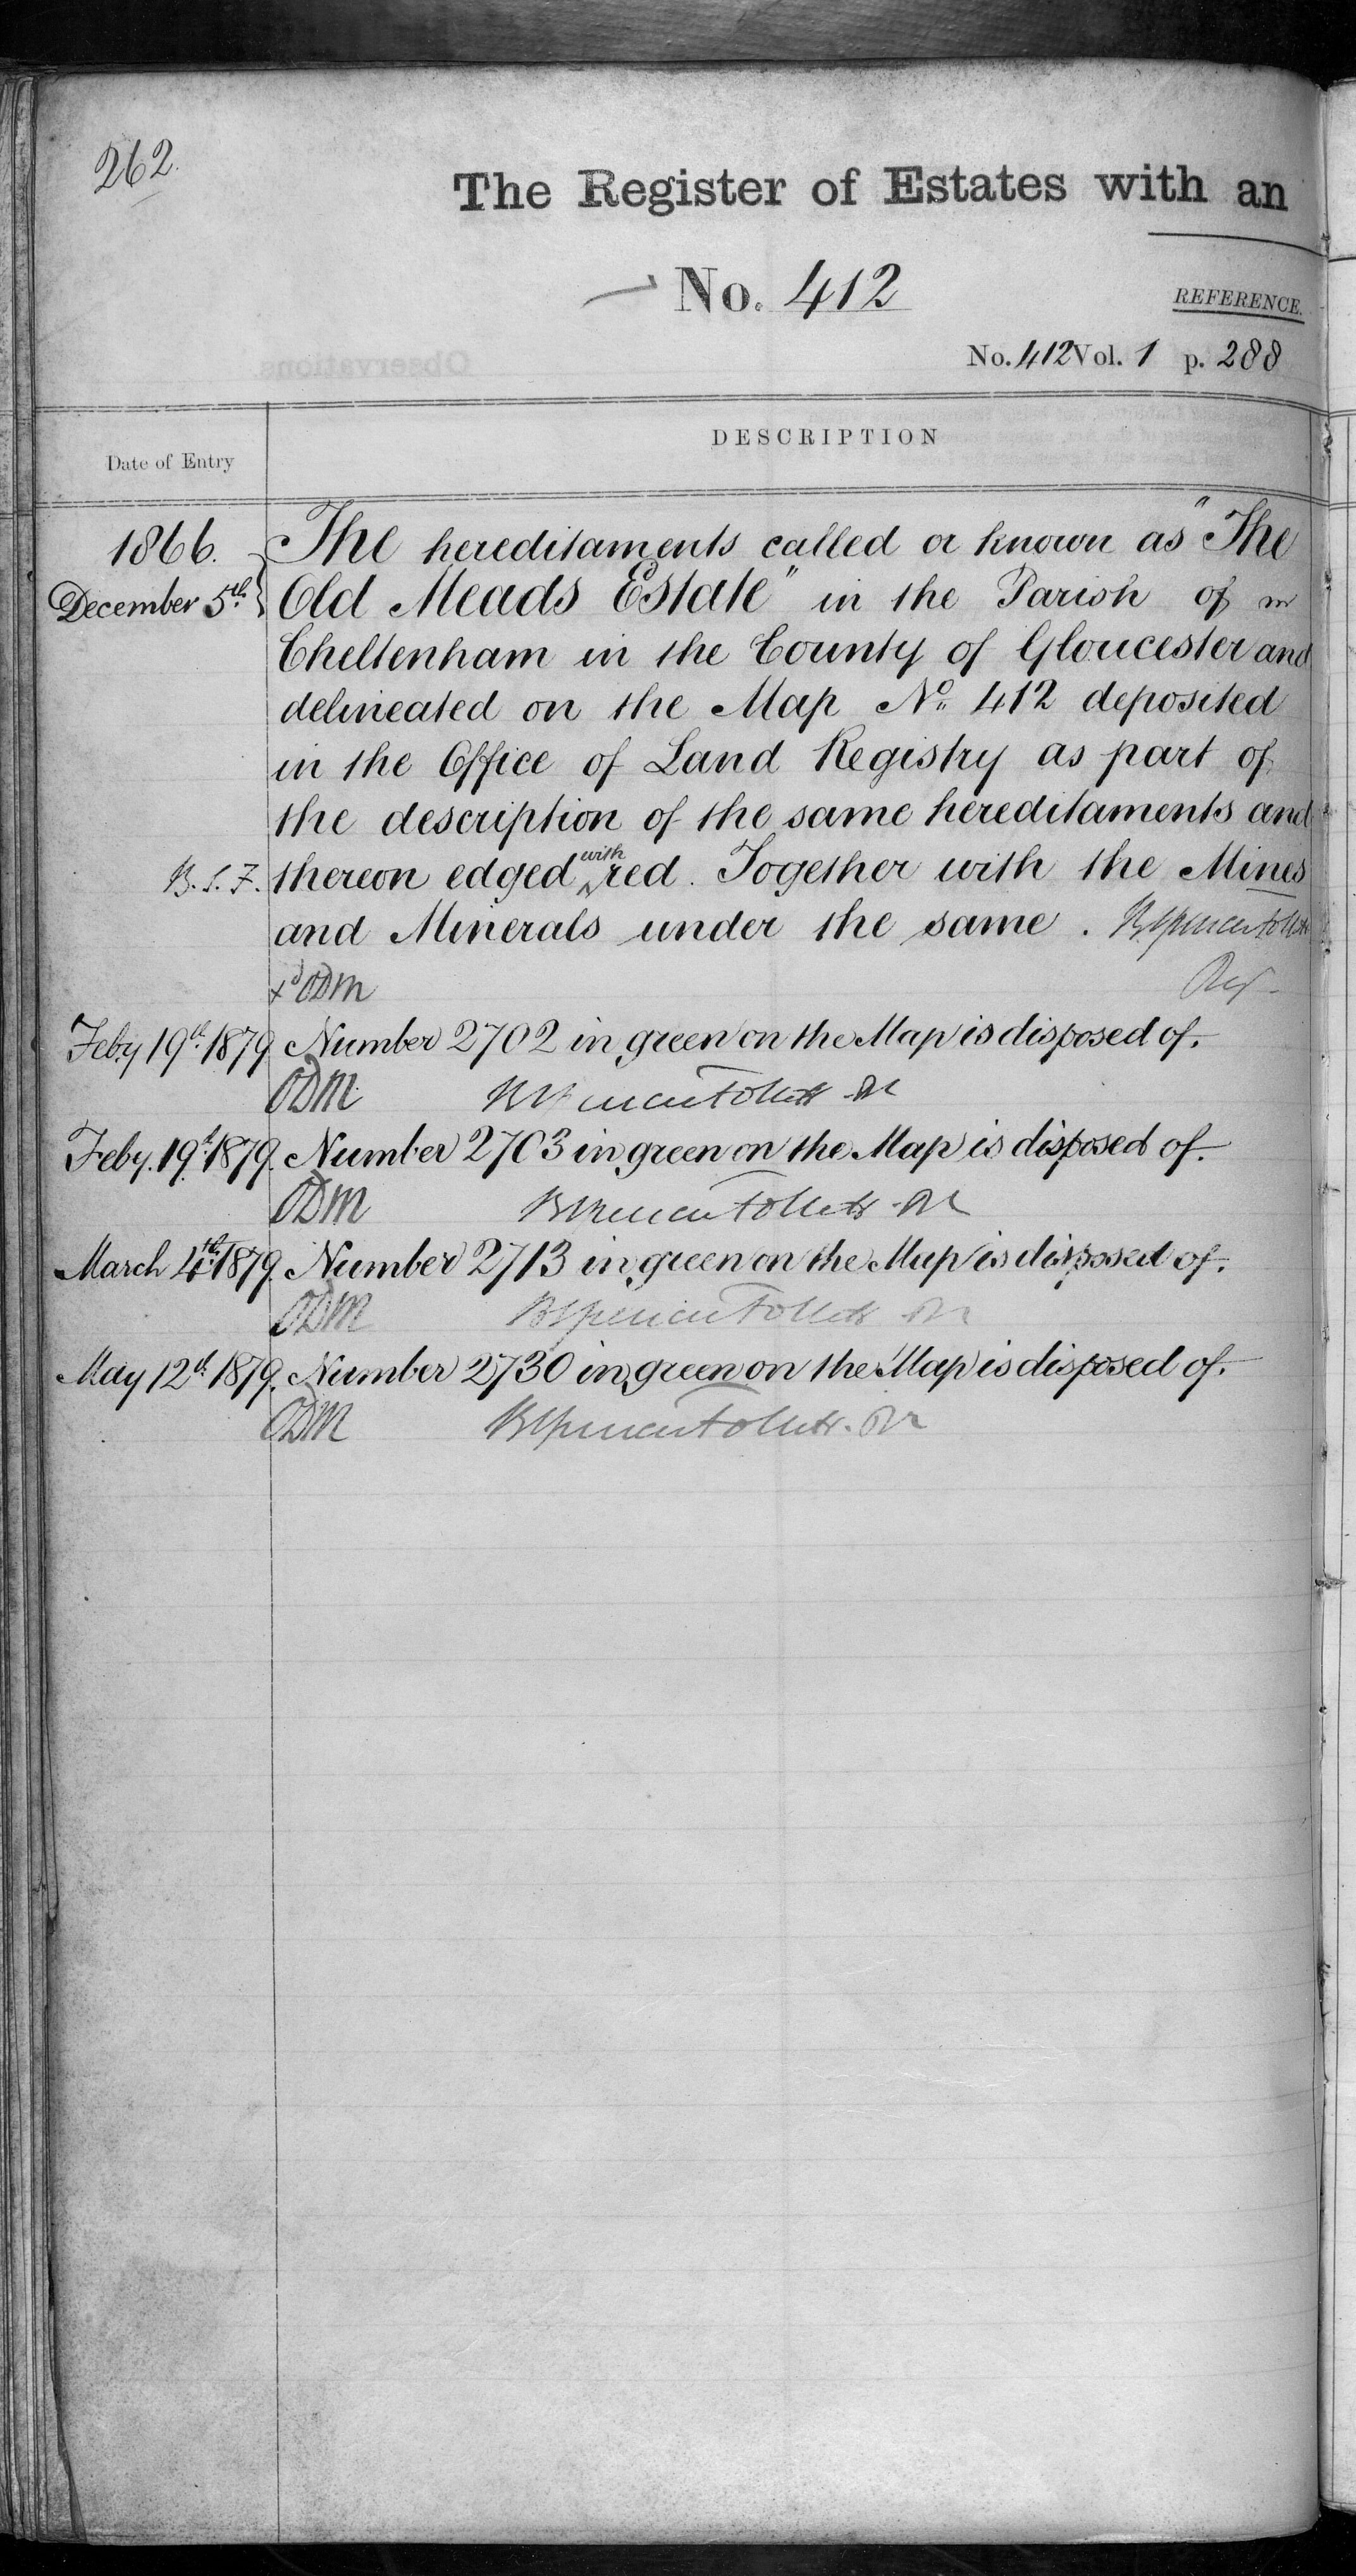 262.
The Register of Estates with an
No. 412
REFERENCE.
No. 412 Vol. 1 p. 288
Observations.
DESCRIPTION
Date of Entry
1866. The hereditaments called or known as "The
December 5th. Old Meads Estate" in the Parish of
Cheltenham in the County of Gloucester and
delineated on the Map No. 412 deposited
in the Office of Land Registry as part of
the description of the same hereditaments and
B.S.F. thereon edged with red. Together with the Mines
and Minerals under the same. B Spencer Follett
xd ODM Reg.
Feby 19th. 1879 Number 2702 in green on the Map is disposed of.
ODM B Spencer Follett
Feby. 19th. 1879. Number 2703 in green on the Map is disposed of.
ODM B Spencer Follett
March 4th. 1879. Number 2713 in green on the Map is disposed of.
ODM B Spencer Follett
May 12th. 1879. Number 2730 in green on the Map is disposed of.
ODM B Spencer Follett